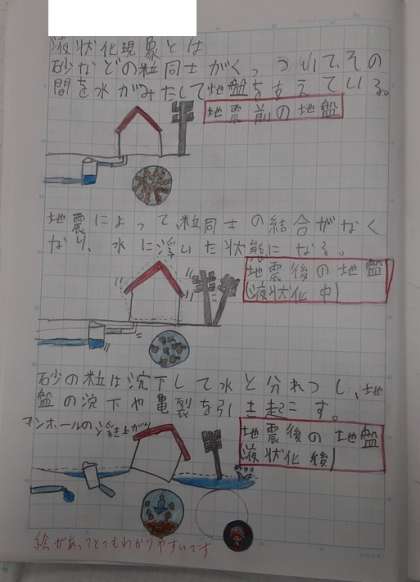 液状化現象とは
砂などの粒同士がくっついて、その
間を水がみたして地盤を支えている。
地震前の地盤
地震によって粒同士の結合がなく
なり、水に浮いた状態になる。
地震後の地盤
(液状化中)
砂の粒は沈下して水と分れつし、地
盤の沈下や亀裂を引き起こす。
マンホールの浮上がり
地震後の地盤
(液状化後)
絵があってとてもわかりやすいです